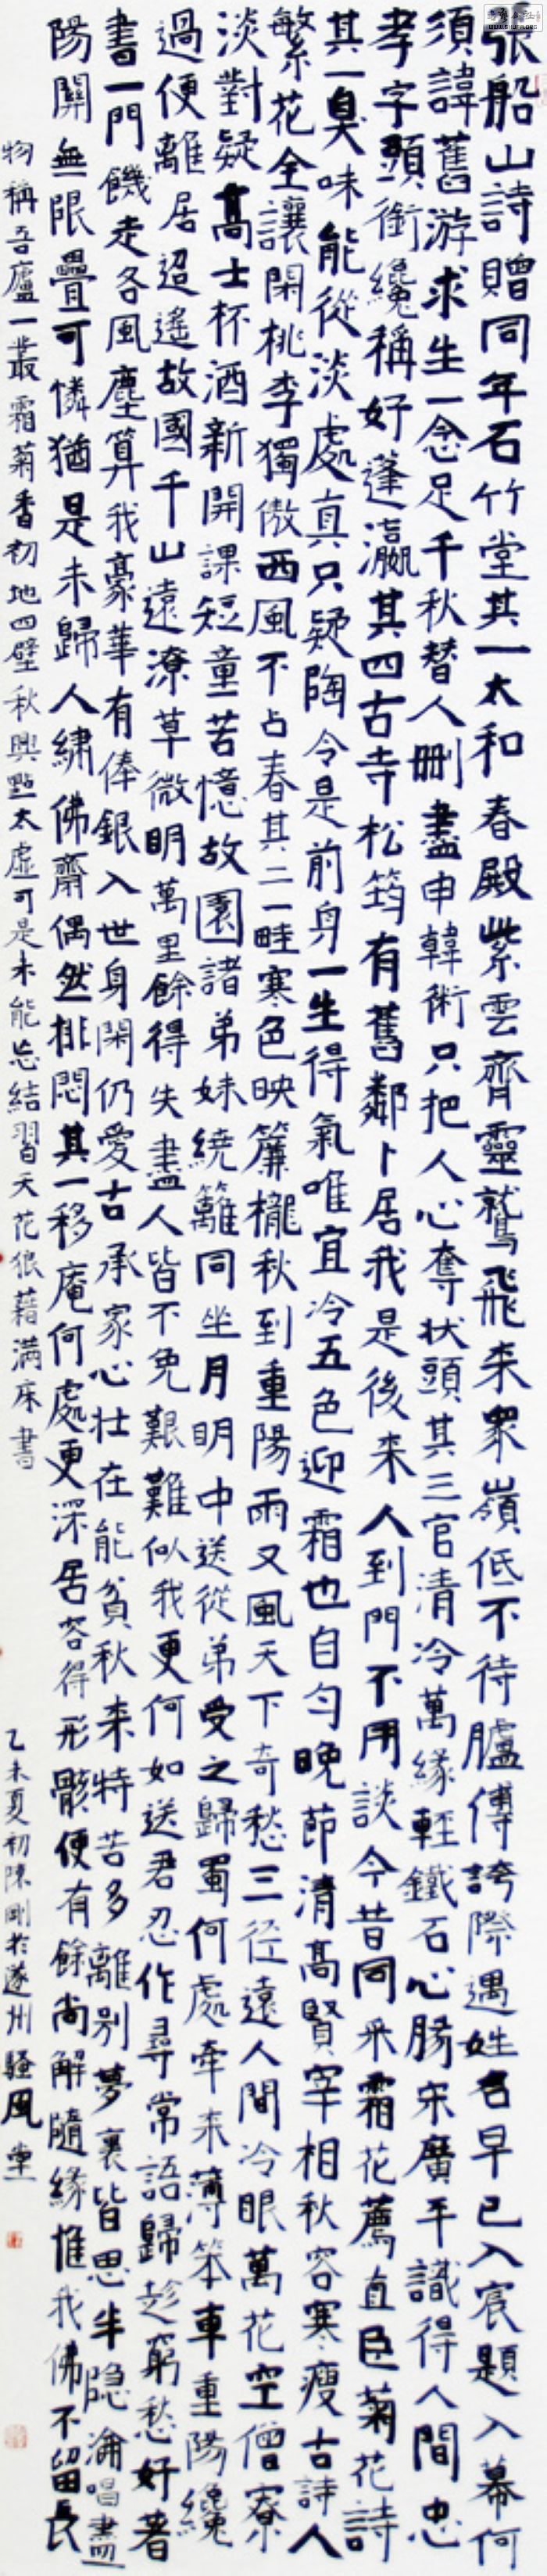 張船山詩贈同年石竹堂其一太和春殿紫雲齊靈鷲飛來眾嶺低不待臚傳誇際遇姓名早已入宸題入幕何
須諱舊游求生一念足千秋替人刪盡申韓術只把人心奪狀頭其三官清冷萬緣輕鐵石心腸宋廣平識得人間忠
孝字頭銜纔稱好蓬瀛其四古寺松筠有舊鄰卜居我是後來人到門不用談今昔同采霜花薦直臣菊花詩
其一臭味能從淡處真只疑陶令是前身一生得氣唯宜冷五色迎霜也自勻晚節清高賢宰相秋容寒瘦古詩人
繁花全讓閑桃李獨傲西風不占春其二一畦寒色映簾櫳秋到重陽雨又風天下奇愁三徑遠人間冷眼萬花空僧寮
淡對疑高士杯酒新開課短童苦憶故園諸弟妹繞籬同坐月明中送從弟受之歸蜀何處牽來薄笨車重陽纔
過便離居迢遙故國千山遠潦草微明萬里餘得失盡人皆不免艱難似我更何如送君忍作尋常語歸趁窮愁好著
書一門饑走各風塵算我豪華有俸銀入世身閑仍愛古承家心壯在能貧秋來特苦多離別夢裏皆思半隱淪唱盡
陽關無限疊可憐猶是未歸人繡佛齋偶然排悶其一移庵何處更深居容得形骸便有餘尚解隨緣惟我佛不留長
物稱吾廬一叢霜菊香初地四壁秋興點太虛可是未能忘結習天花狼藉滿床書
乙未夏初陳剛於遂州騷風堂